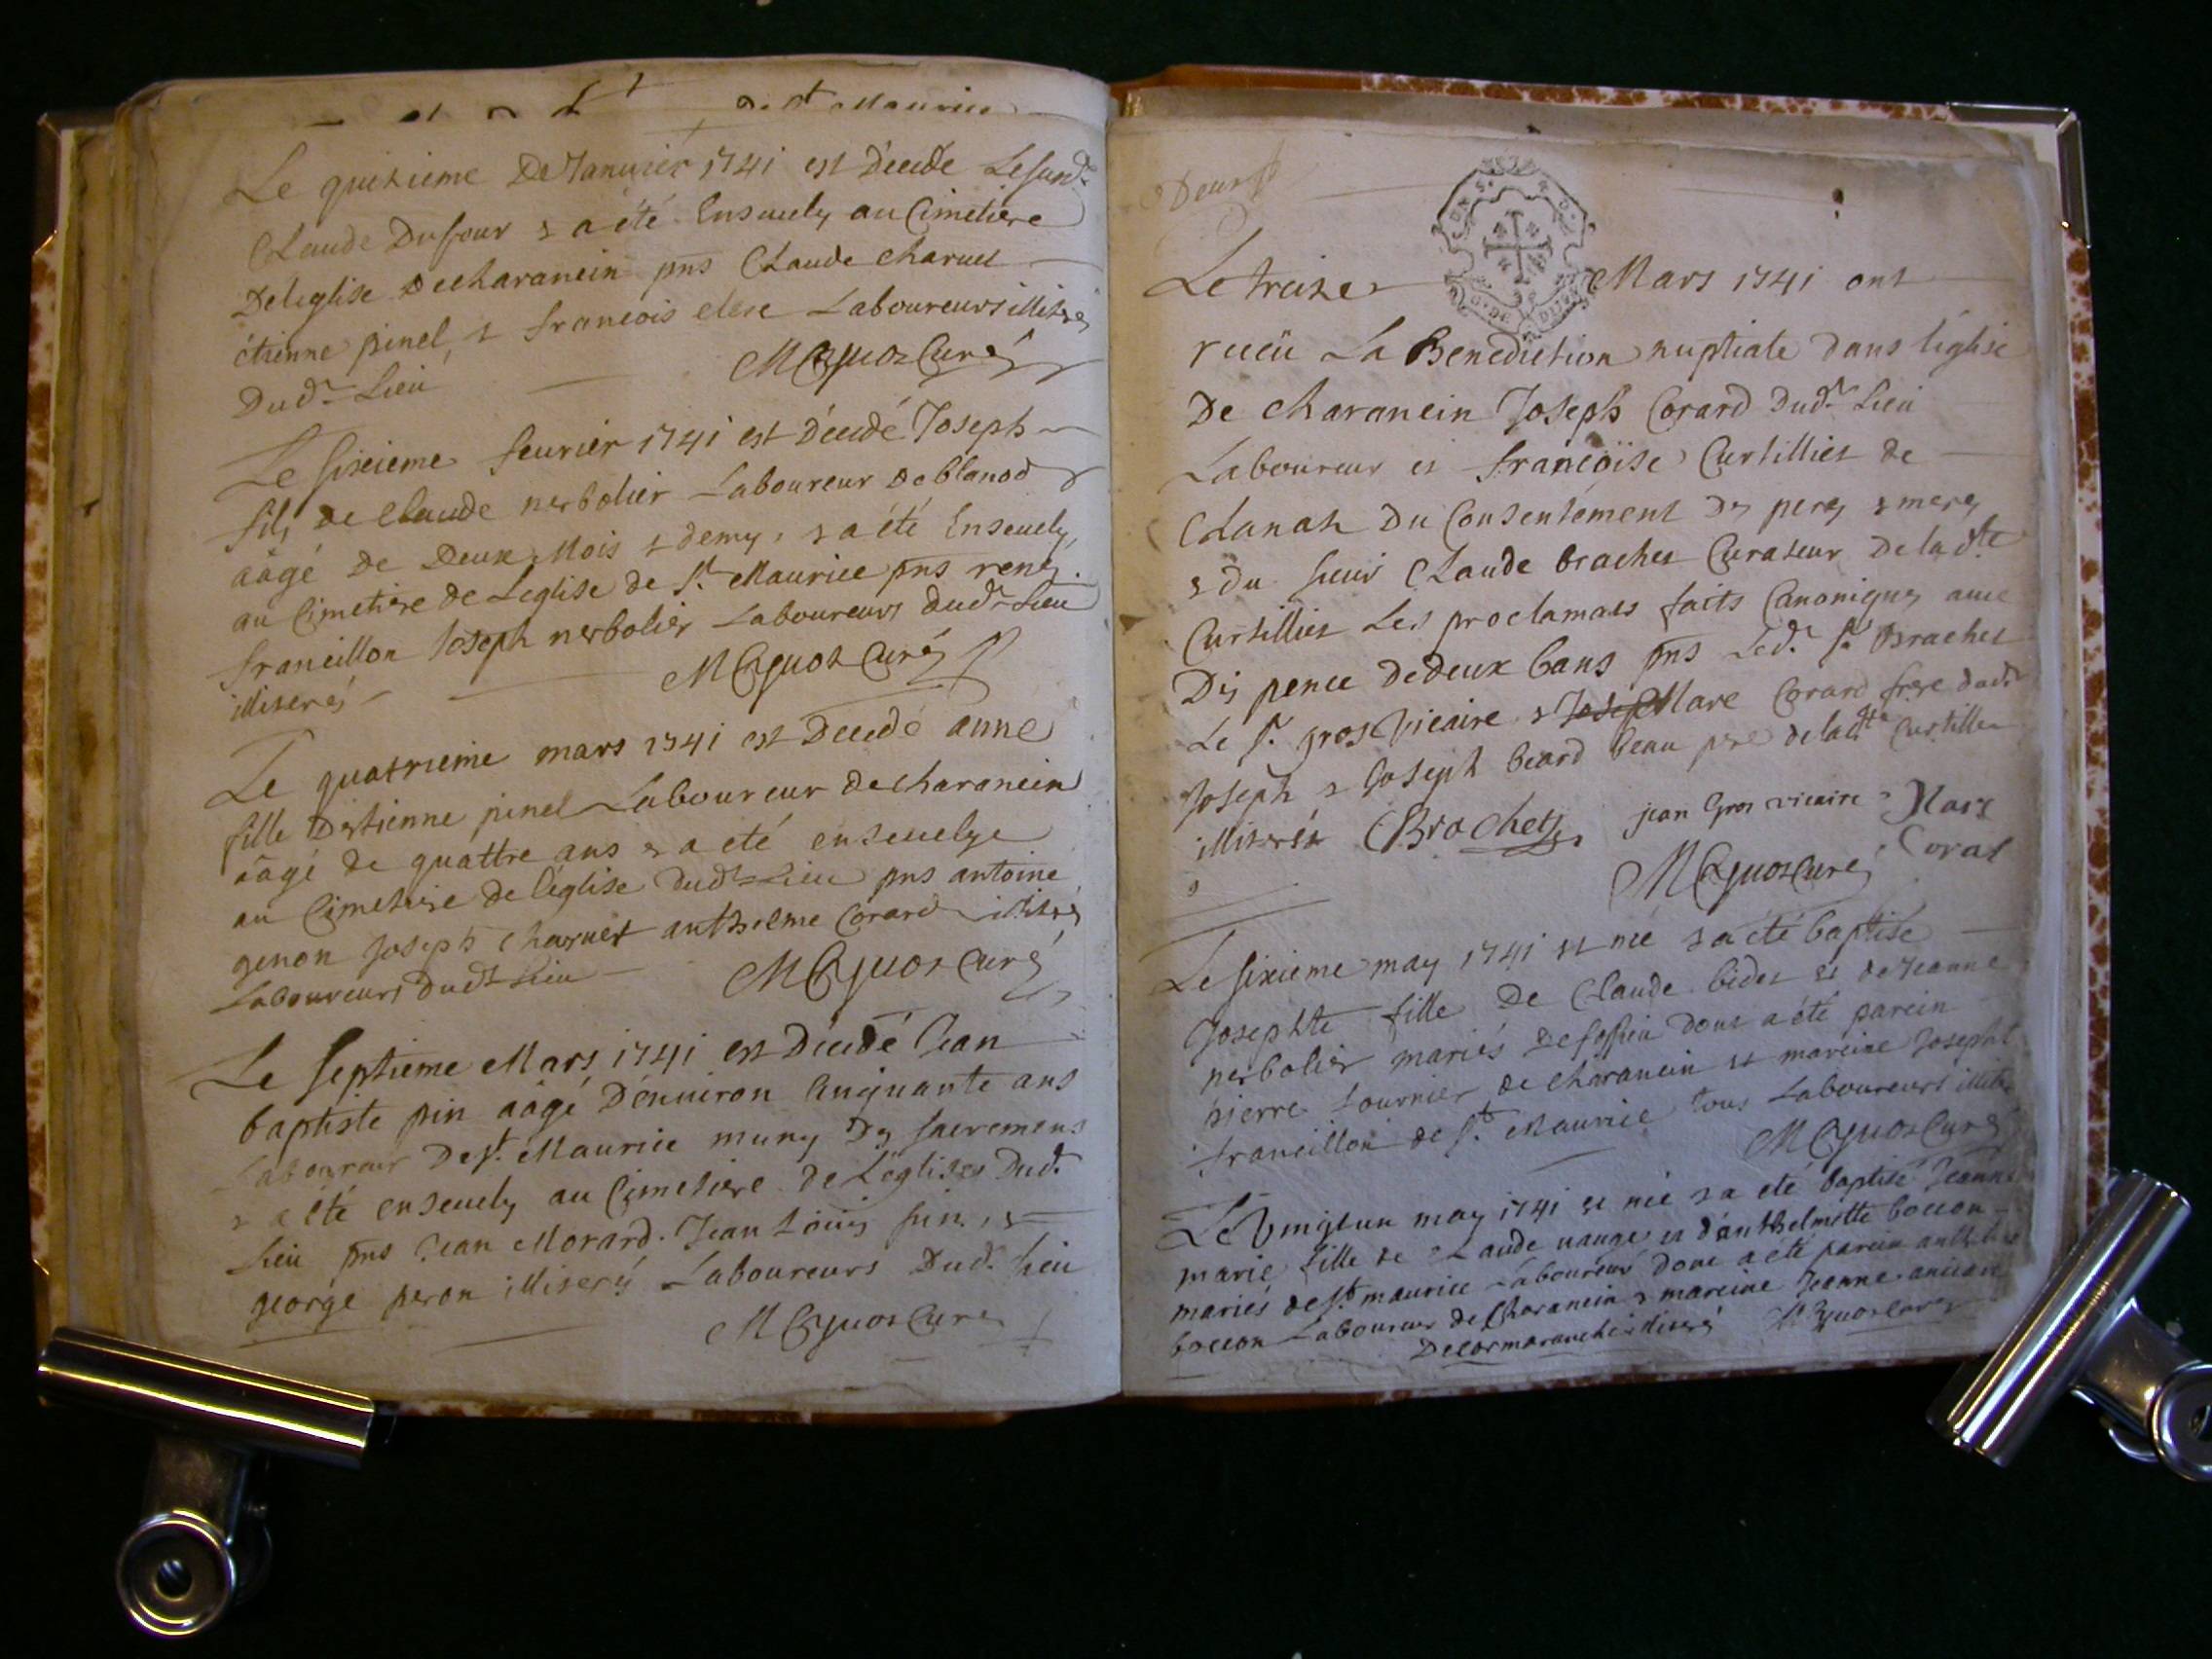 de st Maurice
Le quizieme De Ianvier 1741 est décédé
Claude Dufour & a été Ensevely au Cimetiere
De leglise de charancin pns Claude charvet
étienne pinel, & francois clere Laboureurs illiterés
Dud. Lieu MCoguoz Curé
Le sixieme fevrier 1741 est décédé Joseph
fils de Claude nerbolier Laboureur de blanod
aâgé de Deux Mois & demy, & a été Ensevely
au Cimetiere de Leglise de St. Maurice pns rené
francillon Joseph nerbolier Laboureurs dud. Lieu
illiterés MCoguoz Curé
Le quatrieme mars 1741 est Décédé anne
fille d'etienne pinel Laboureur de charancin
aâgé de quattre ans & a eté ensevelye
au Cimetiere de l'église dud. Lieu pns antoine
genon Joseph charvet anthelme Corard illiterés
Laboureurs dud. Lieu MCoguoz Curé
Le septieme Mars 1741 est Décédé Jean
baptiste pin aâgé D'environ Cinquante ans
Laboureur De st. Maurice muny des sacremens
& a été ensevely au Cimetiere de Léglises Dud.
Lieu pns Jean Morard. Jean Louis pin, &
george peron illiterés Laboureurs Dud. Lieu
MCoguoz Curé
Le treize Mars 1741 ont
receü La Benediction nuptiale dans l'église
De charancin Joseph Corard Dud. Lieu
Laboureur et françoise Curtilliet de
Clanas Du Consentement des peres & meres
& du sieur Claude brachet Curateur De lad.te
Curtilliet Les proclamats faits Canoniques avec
Dispence de deux bans pns Led. Sr. Brachet
Le Sr. gros Vicaire & Marc Corard frere dud.
Joseph & Joseph beard beau pere de lad.te Curtillet
illiterés Brachet jean Gros vicaire Marc
MCoguoz Curé Corat
Le sixieme may 1741 et née & a été baptisé
Josephte fille De Claude bidet et de Jeanne
nerbolier mariés de fossieu dont a été parein
pierre tournier de charancin et mareine Josepht
francillon de St. Maurice tous Laboureurs illite
MCoguoz Curé
Le Vingtun may 1741 et née & a eté baptisé Jeanne
marie fille de Claude vauge et d'anthelmette boccon
mariés de St. maurice Laboureurs dont a été parein
boccon Laboureur de Charancin & mareine Jeanne
De cormaranche illiteré MCoguoz Curé